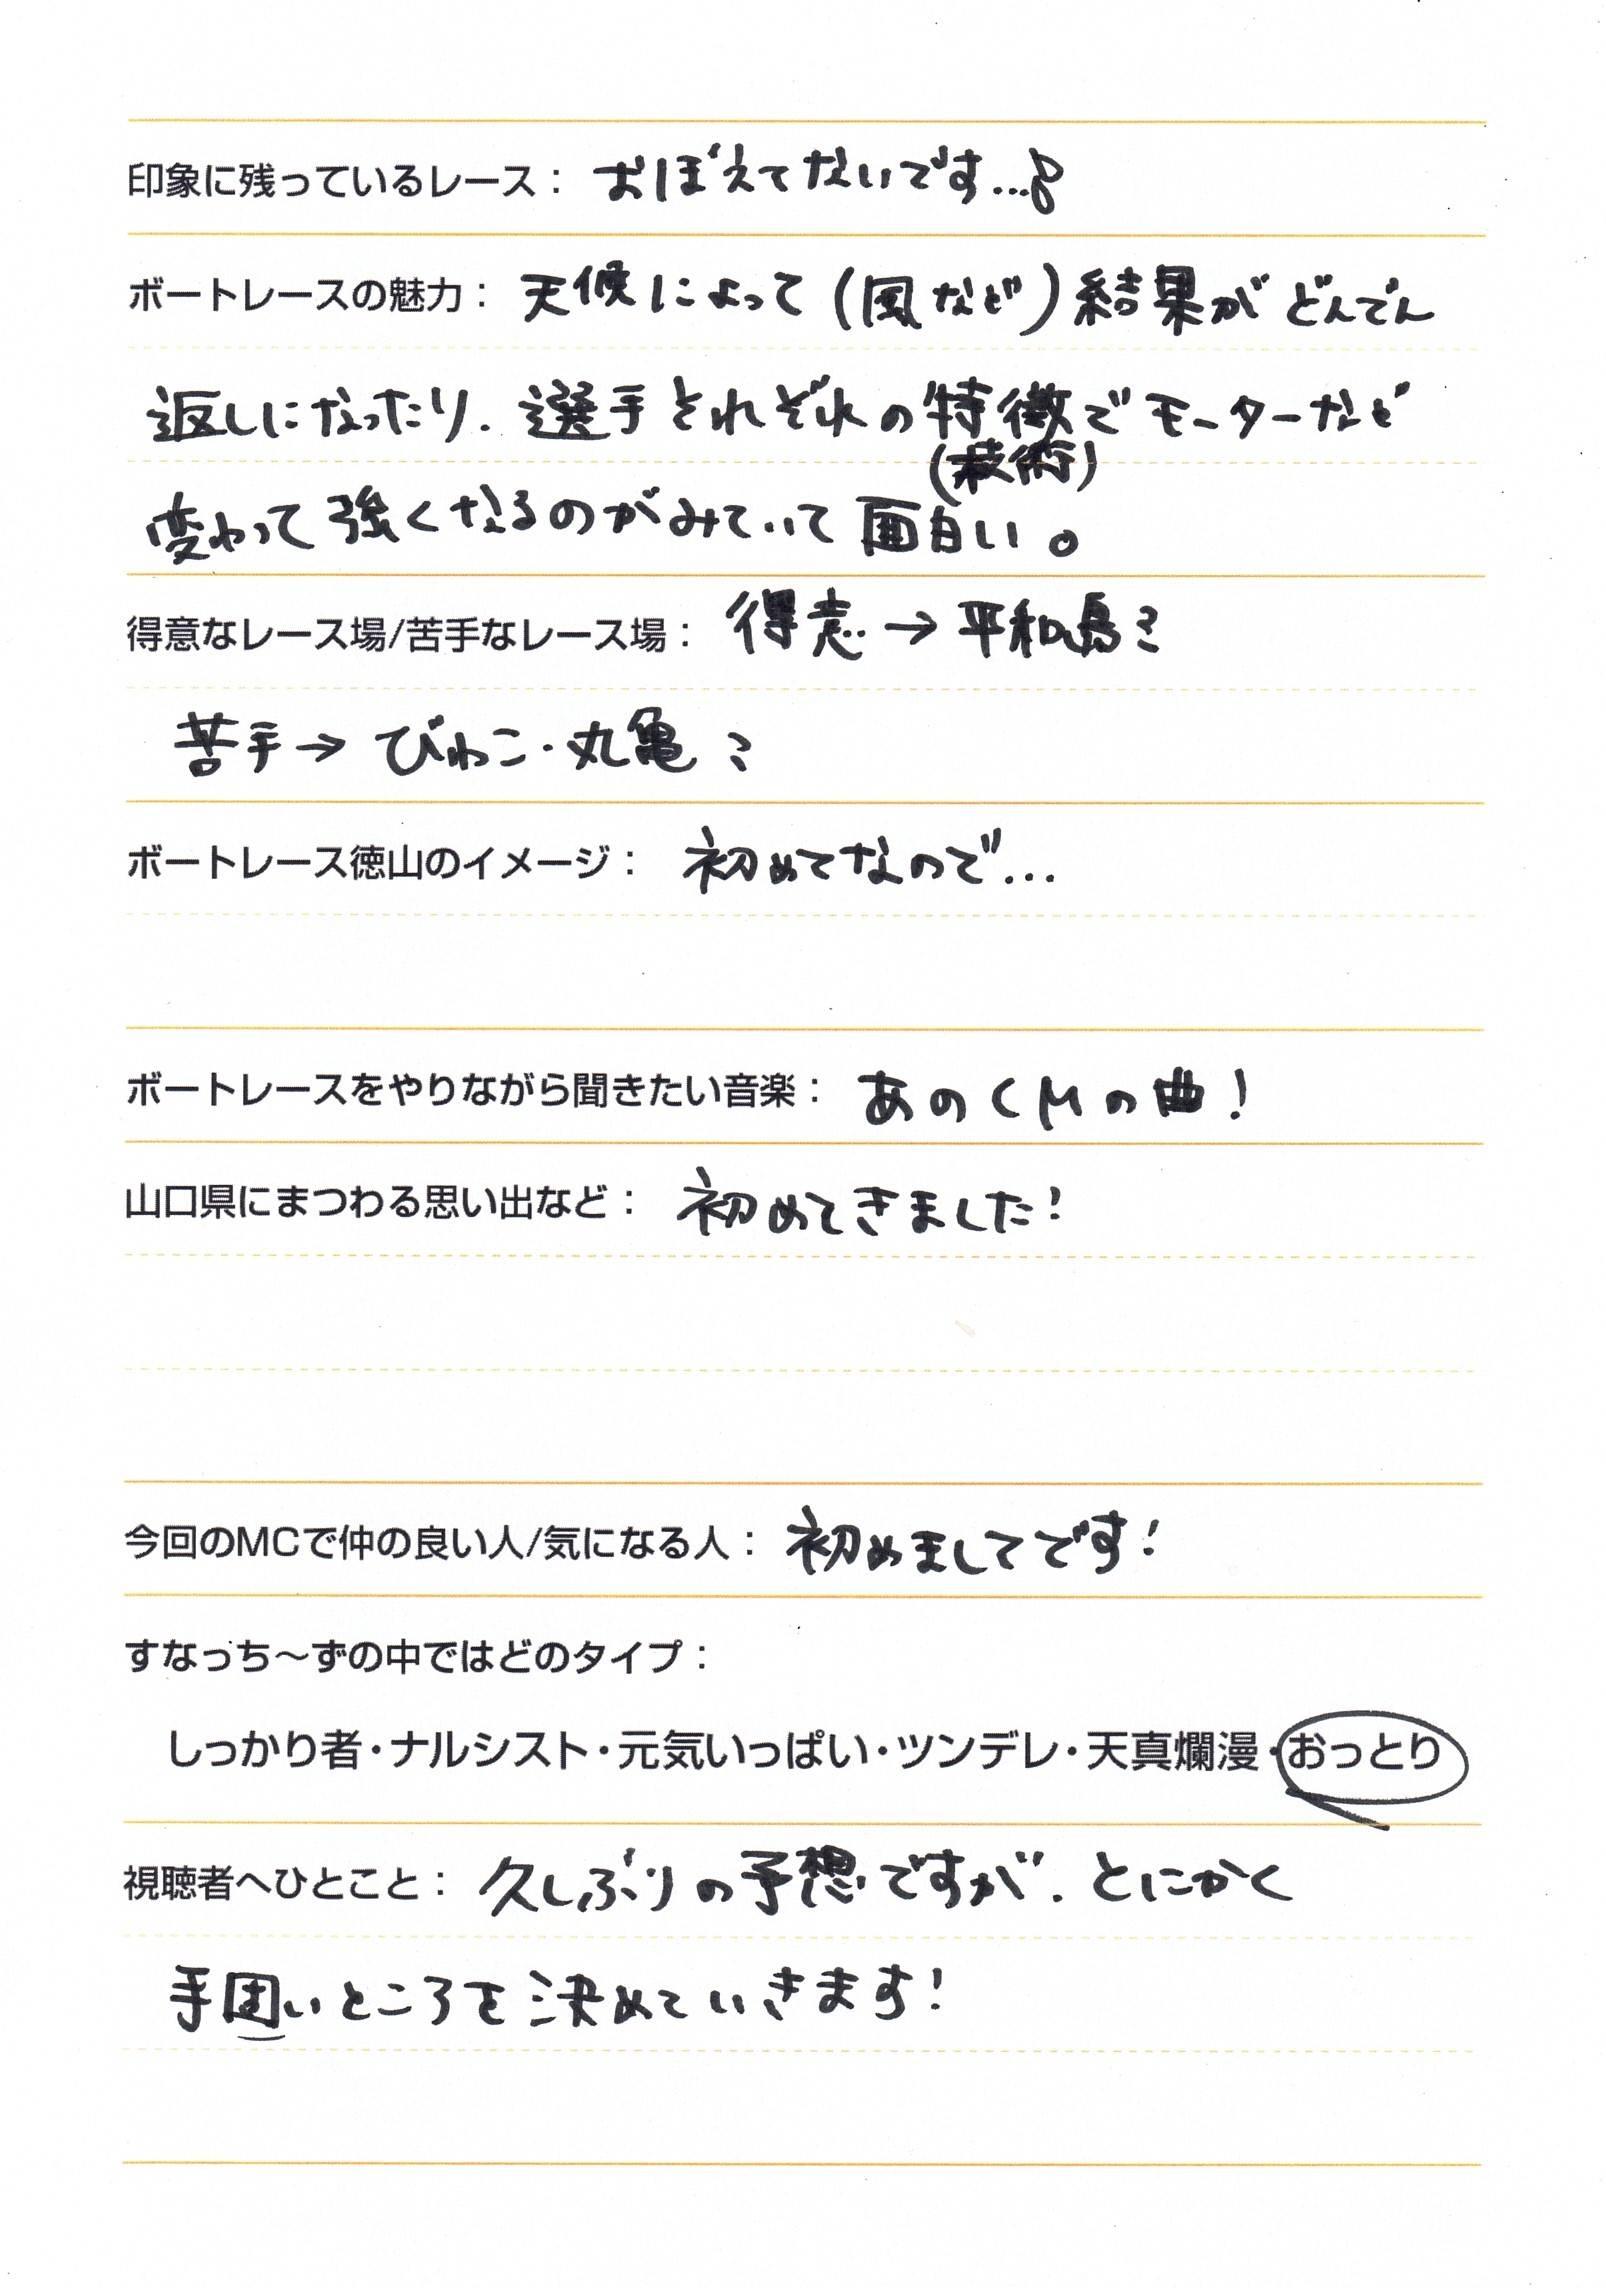 印象に残っているレース： おぼえてないです…
ボートレースの魅力： 天候によって（風など）結果がどんでん
返しになったり、選手それぞれの特徴でモーターなど
（技術）
変わって強くなるのがみていて面白い。
得意なレース場/苦手なレース場： 得意→平和島
苦手→びわこ・丸亀
ボートレース徳山のイメージ： 初めてなので…
ボートレースをやりながら聞きたい音楽： あのCMの曲！
山口県にまつわる思い出など： 初めてきました！
今回のMCで仲の良い人/気になる人： 初めましてです！
すなっち～ずの中ではどのタイプ：
しっかり者・ナルシスト・元気いっぱい・ツンデレ・天真爛漫・おっとり
視聴者へひとこと： 久しぶりの予想ですが、とにかく
手固いところを決めていきます！